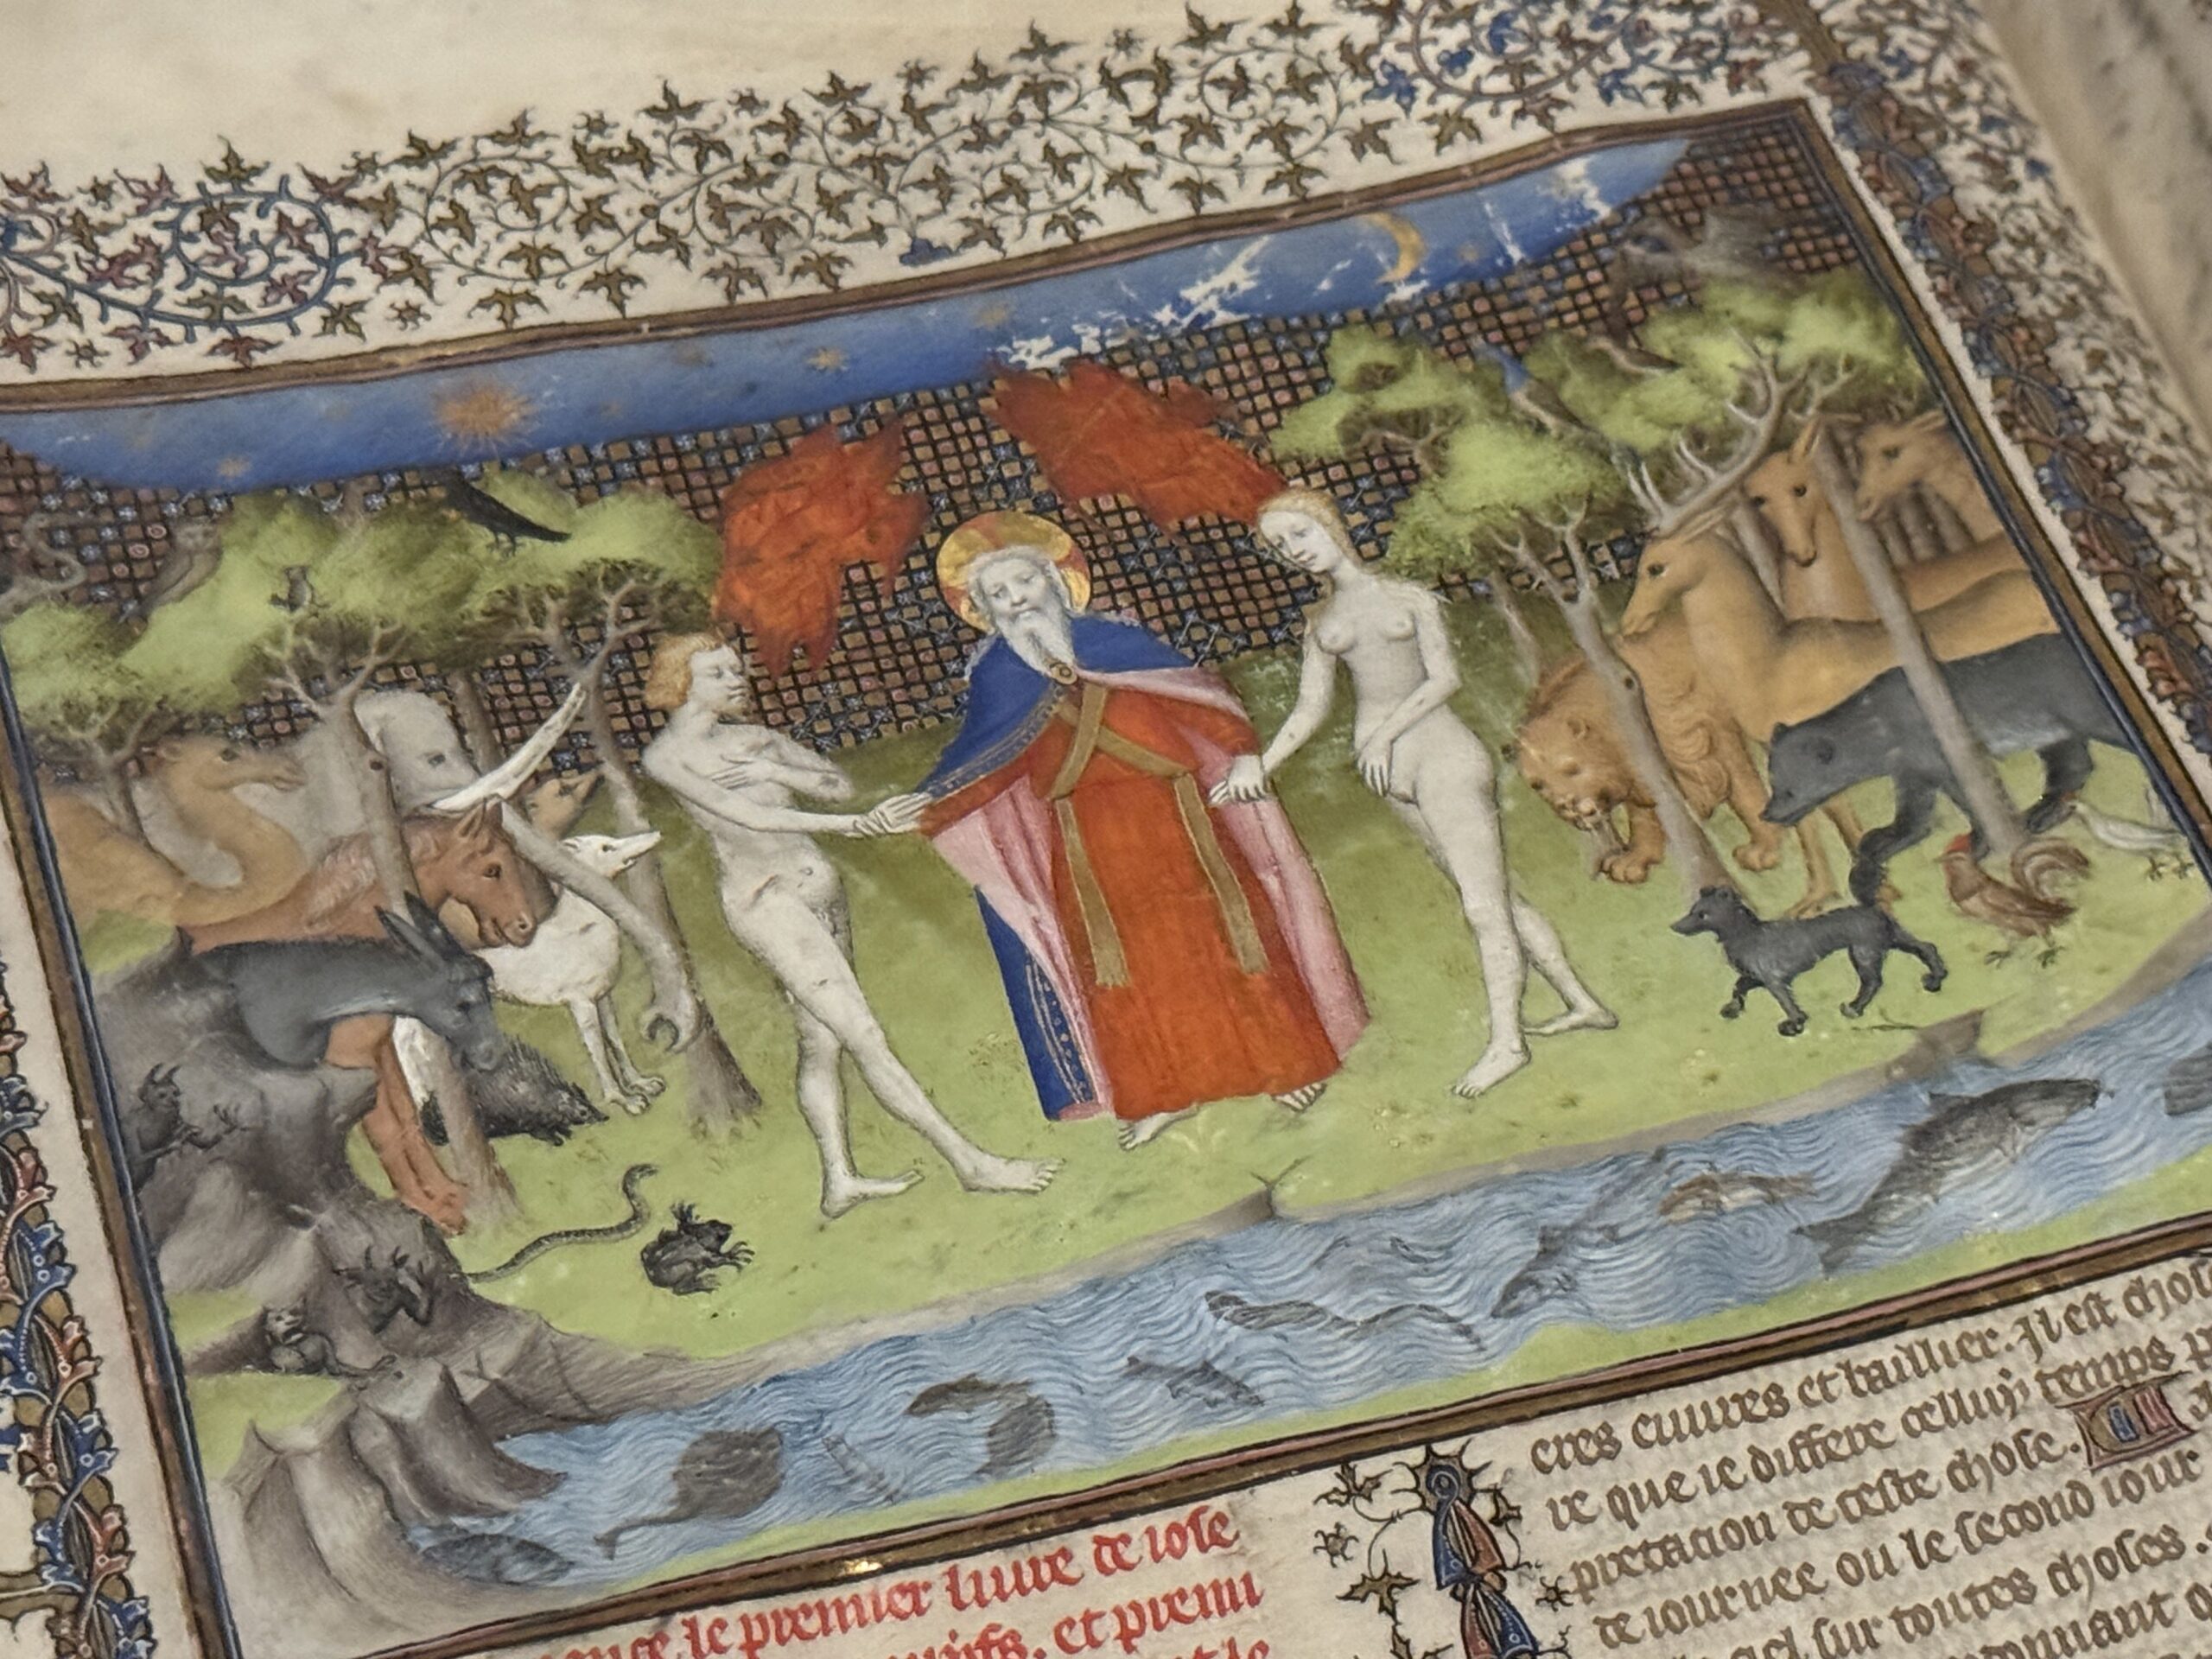 le premier liure de iose
et premi
eres euures et taillier. Il est chose
re que ie differe celluy temps
pretacion de ceste chose.
de iournee ou le second iour
sur toutes choses.